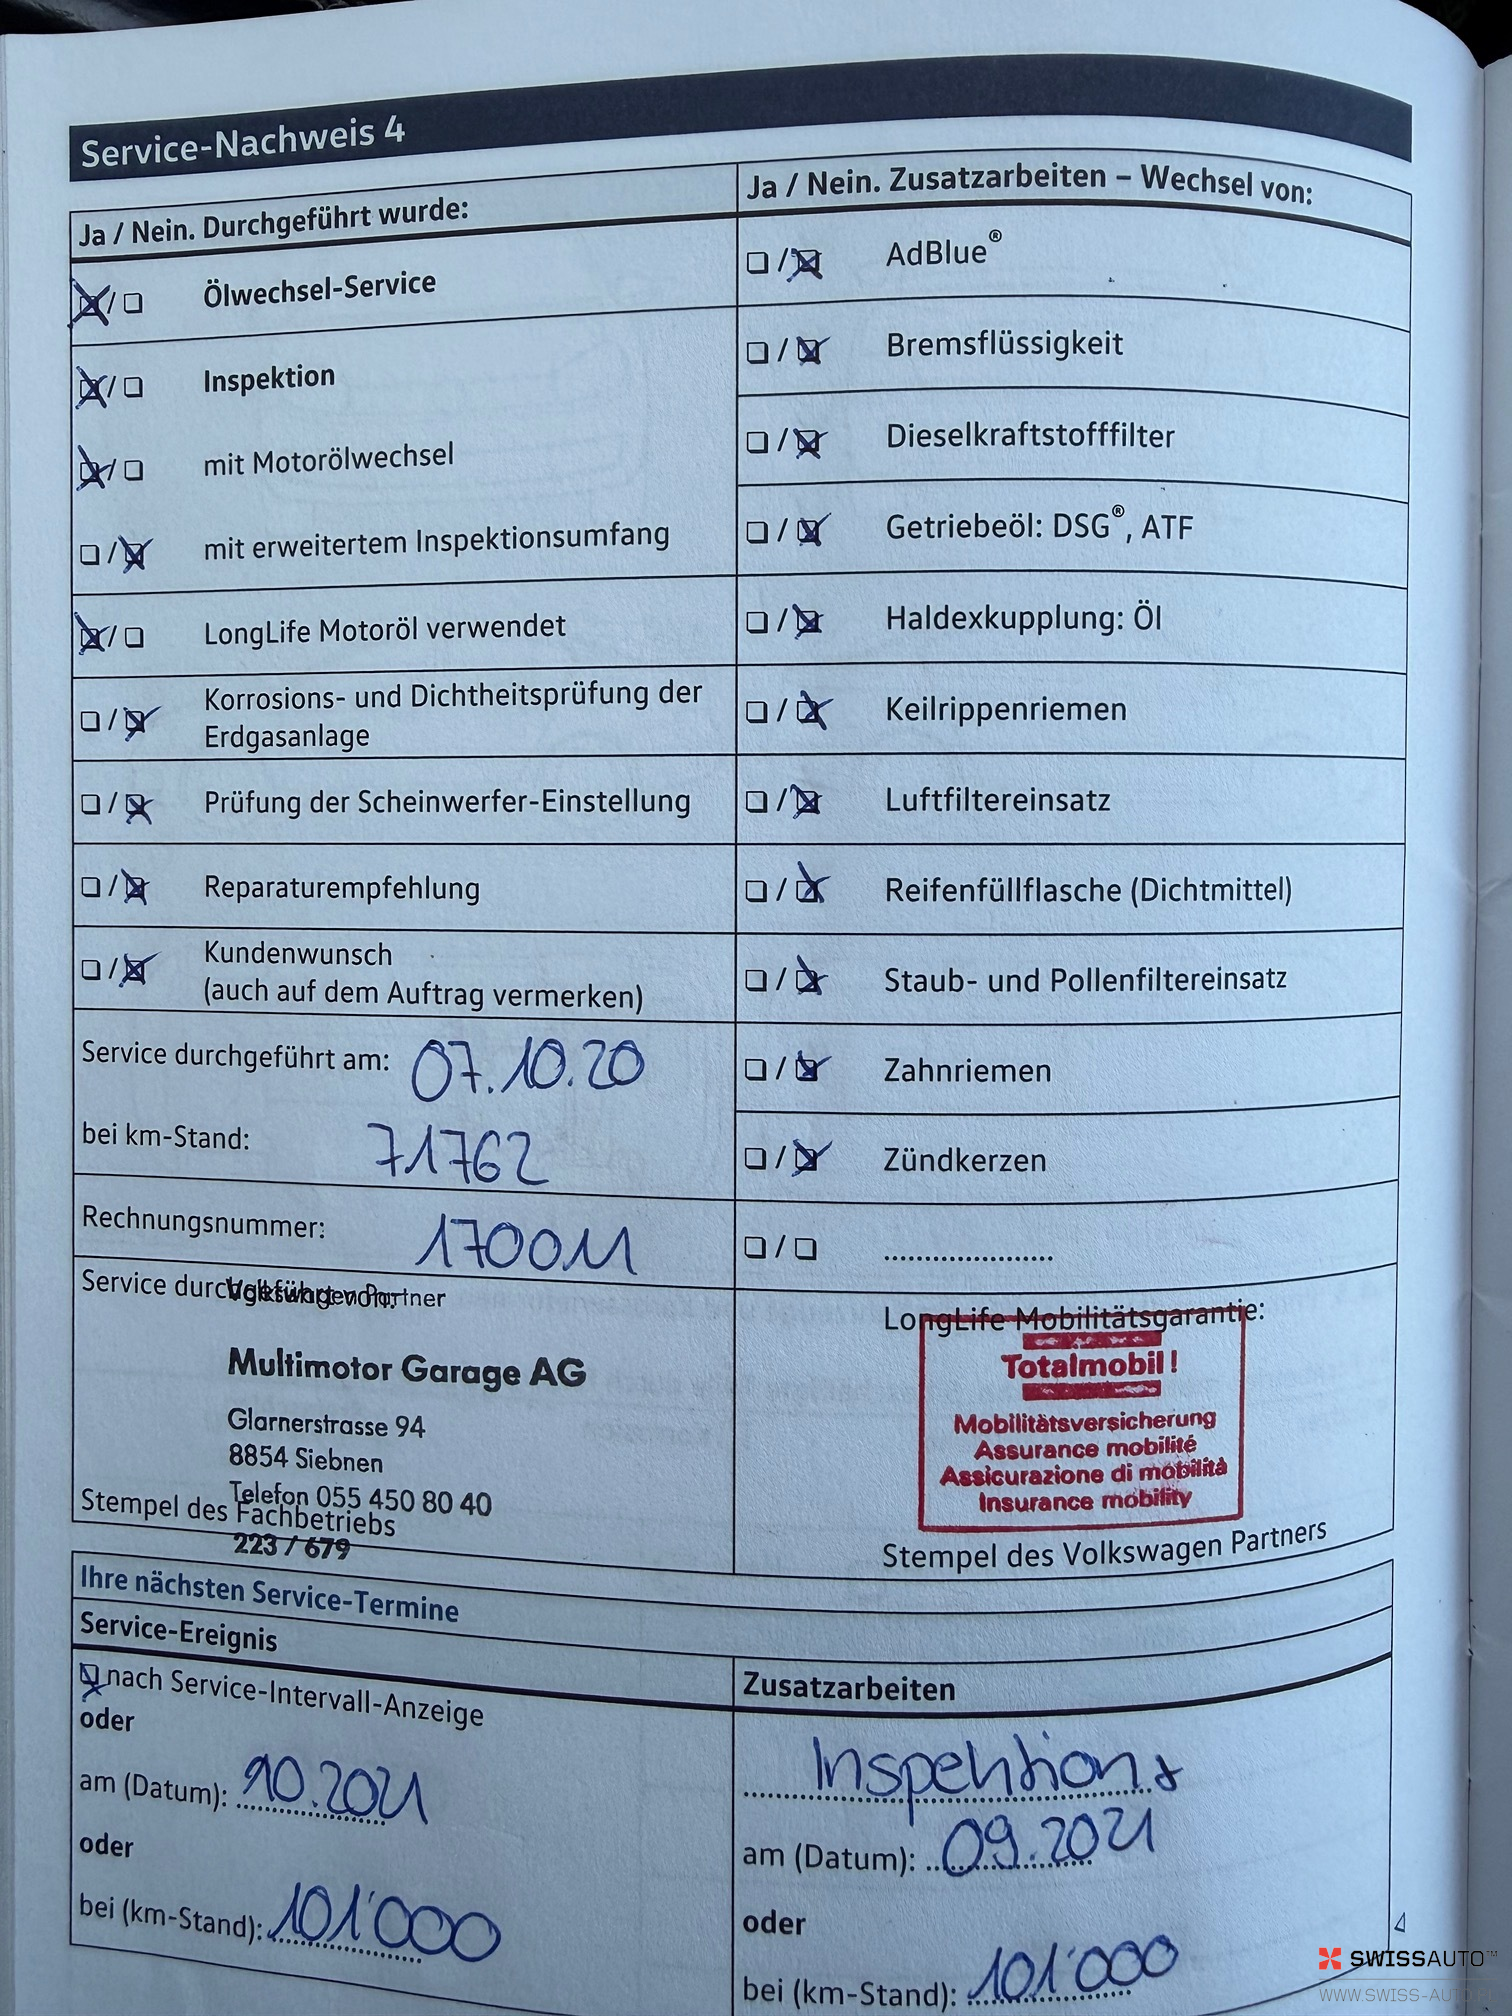 Service-Nachweis 4
Ja / Nein. Durchgeführt wurde:
Ölwechsel-Service
Inspektion
mit Motorölwechsel
mit erweitertem Inspektionsumfang
LongLife Motoröl verwendet
Korrosions- und Dichtheitsprüfung der
Erdgasanlage
Prüfung der Scheinwerfer-Einstellung
Reparaturempfehlung
Kundenwunsch
(auch auf dem Auftrag vermerken)
Service durchgeführt am: 07.10.20
bei km-Stand: 71762
Rechnungsnummer: 170011
Service durchgeführt von:
Volkswagen Partner
Multimotor Garage AG
Glarnerstrasse 94
8854 Siebnen
Telefon 055 450 80 40
Stempel des Fachbetriebs
223 / 679
Ja / Nein. Zusatzarbeiten – Wechsel von:
AdBlue®
Bremsflüssigkeit
Dieselkraftstofffilter
Getriebeöl: DSG®, ATF
Haldexkupplung: Öl
Keilrippenriemen
Luftfiltereinsatz
Reifenfüllflasche (Dichtmittel)
Staub- und Pollenfiltereinsatz
Zahnriemen
Zündkerzen
....................
LongLife Mobilitätsgarantie:
Totalmobil!
Mobilitätsversicherung
Assurance mobilité
Assicurazione di mobilità
Insurance mobility
Stempel des Volkswagen Partners
Ihre nächsten Service-Termine
Service-Ereignis
nach Service-Intervall-Anzeige
oder
am (Datum): 10.2021
oder
bei (km-Stand): 101'000
Zusatzarbeiten
Inspektion
am (Datum): 09.2021
oder
bei (km-Stand): 101'000
SWISSAUTO™